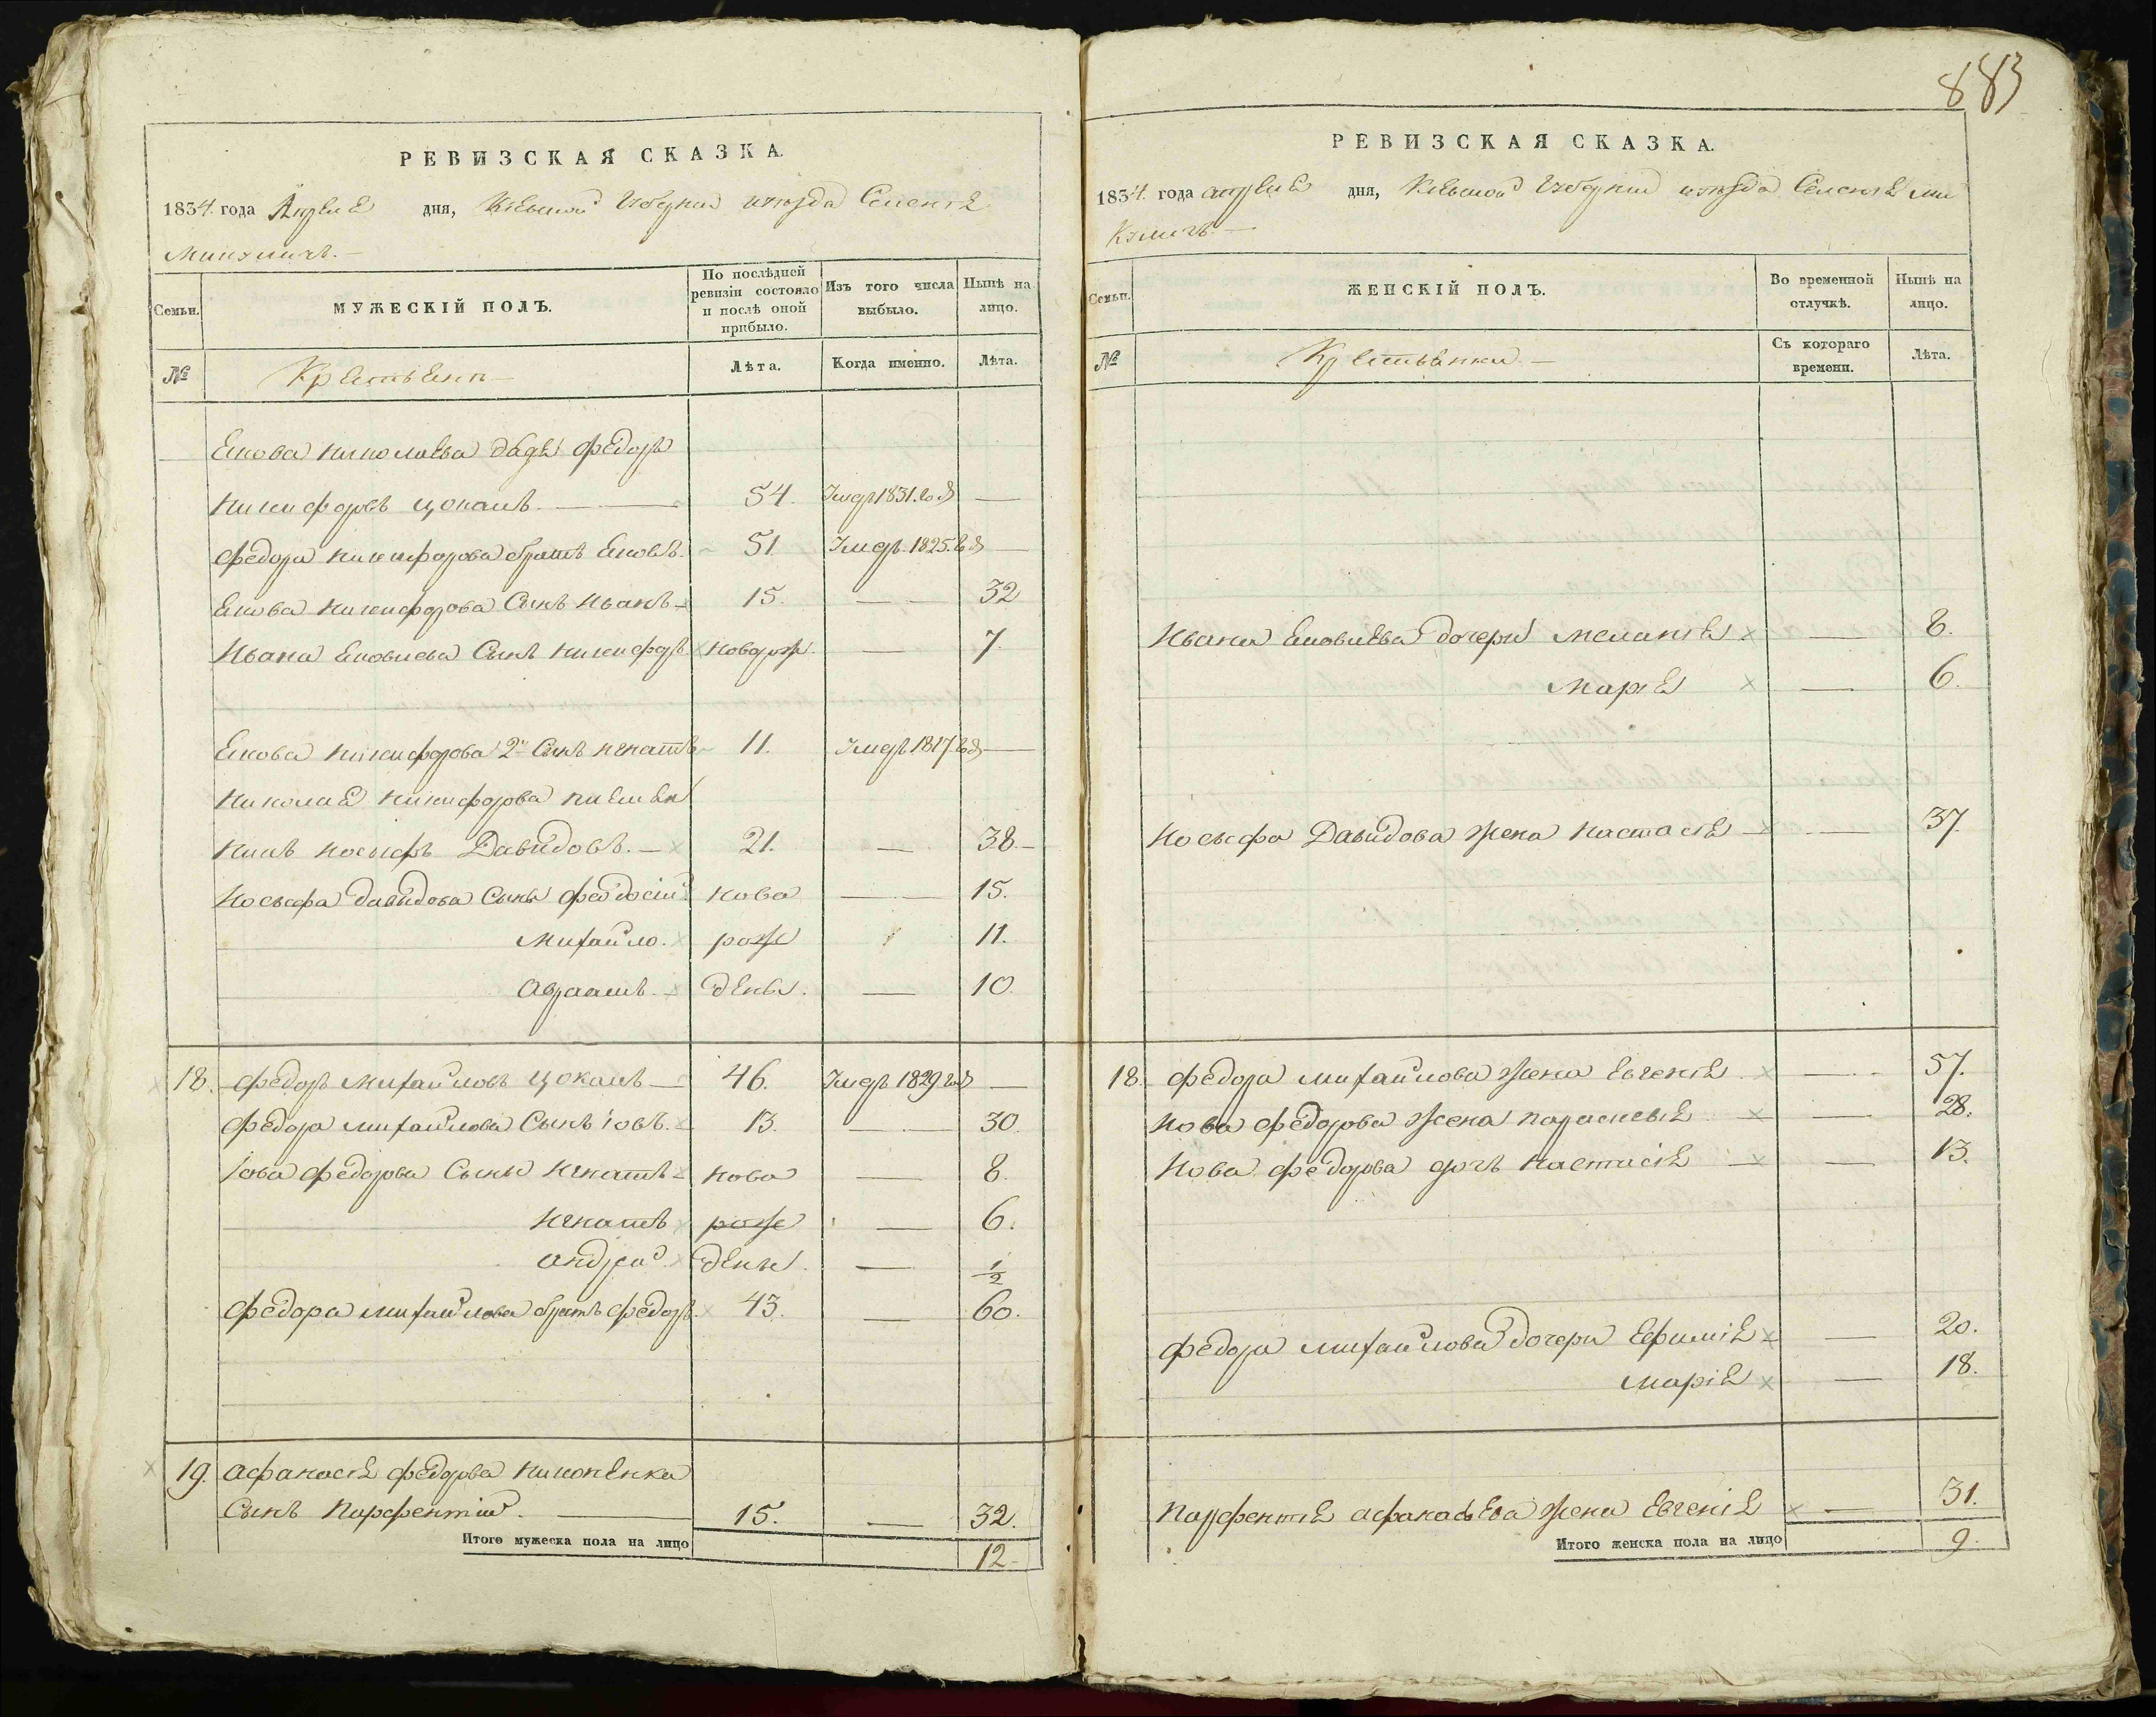 883
РЕВИЗСКАЯ СКАЗКА.
1834. года Апреля дня, Кіевской Губерніи уезда Селенія
Микуличъ. —
Семьи.
МУЖЕСКІЙ ПОЛЪ.
По послѣдней ревизіи состояло и послѣ оной прибыло.
Изъ того числа выбыло.
Нынѣ на лицо.
№
Крестьяне —
Лѣта.
Когда именно.
Лѣта.
Якова Николаева дядя Федоръ
Никифоровъ Цокалъ. — 54. Умеръ 1831. год —
Федора Никифорова братъ Яковъ. 51. Умеръ 1825. год —
Якова Никифорова Сынъ Иванъ — 15. — 32
Ивана Яковлева Сынъ Никифоръ. новорож. — 7.
Якова Никифорова 2й Сынъ Игнатъ 11. Умеръ 1817 год —
Николая Никифорова племян
никъ Иосыфъ Давидовъ. — 21. — 38. —
Иосыфа Давыдова Сыны Феодосій ново — 15.
Михайло. рож 11.
Авраамъ. — дены. — 10.
18. Федоръ Михайловъ Цокалъ — 46. Умеръ 1829 год —
Федора Михайлова Сынъ Іовъ. — 13. — 30.
Іова Федорова Сыны Игнатъ — ново — 8.
Игнатъ рож — 6.
Андрей дены. — 1/2
Федора Михайлова братъ Федоръ. 43. — 60.
19. Афанасія Федорова Никоненка
Сынъ Парфентій. — 15. — 32.
Итого мужеска пола на лицо 12 —
РЕВИЗСКАЯ СКАЗКА.
1834. года апреля дня, Кіевской Губерніи уезда Селенія Ми
куличъ. —
Семьи.
ЖЕНСКІЙ ПОЛЪ.
Во временной отлучкѣ.
Нынѣ на лицо.
№
Крестьянки —
Съ котораго времени.
Лѣта.
Ивана Яковлева дочери Меланія — 8.
Марія — 6.
Иосыфа Давыдова жена Настасія — 37.
18. Федора Михайлова жена Евгенія — 57.
Иова Федорова жена Параскевія — 28.
Иова Федорова дочь Настасія — 13.
Федора Михайлова дочери Ефимія — 20.
Марія — 18.
Парфентія Афанасьева жена Евгенія — 31.
Итого женска пола на лицо 9.